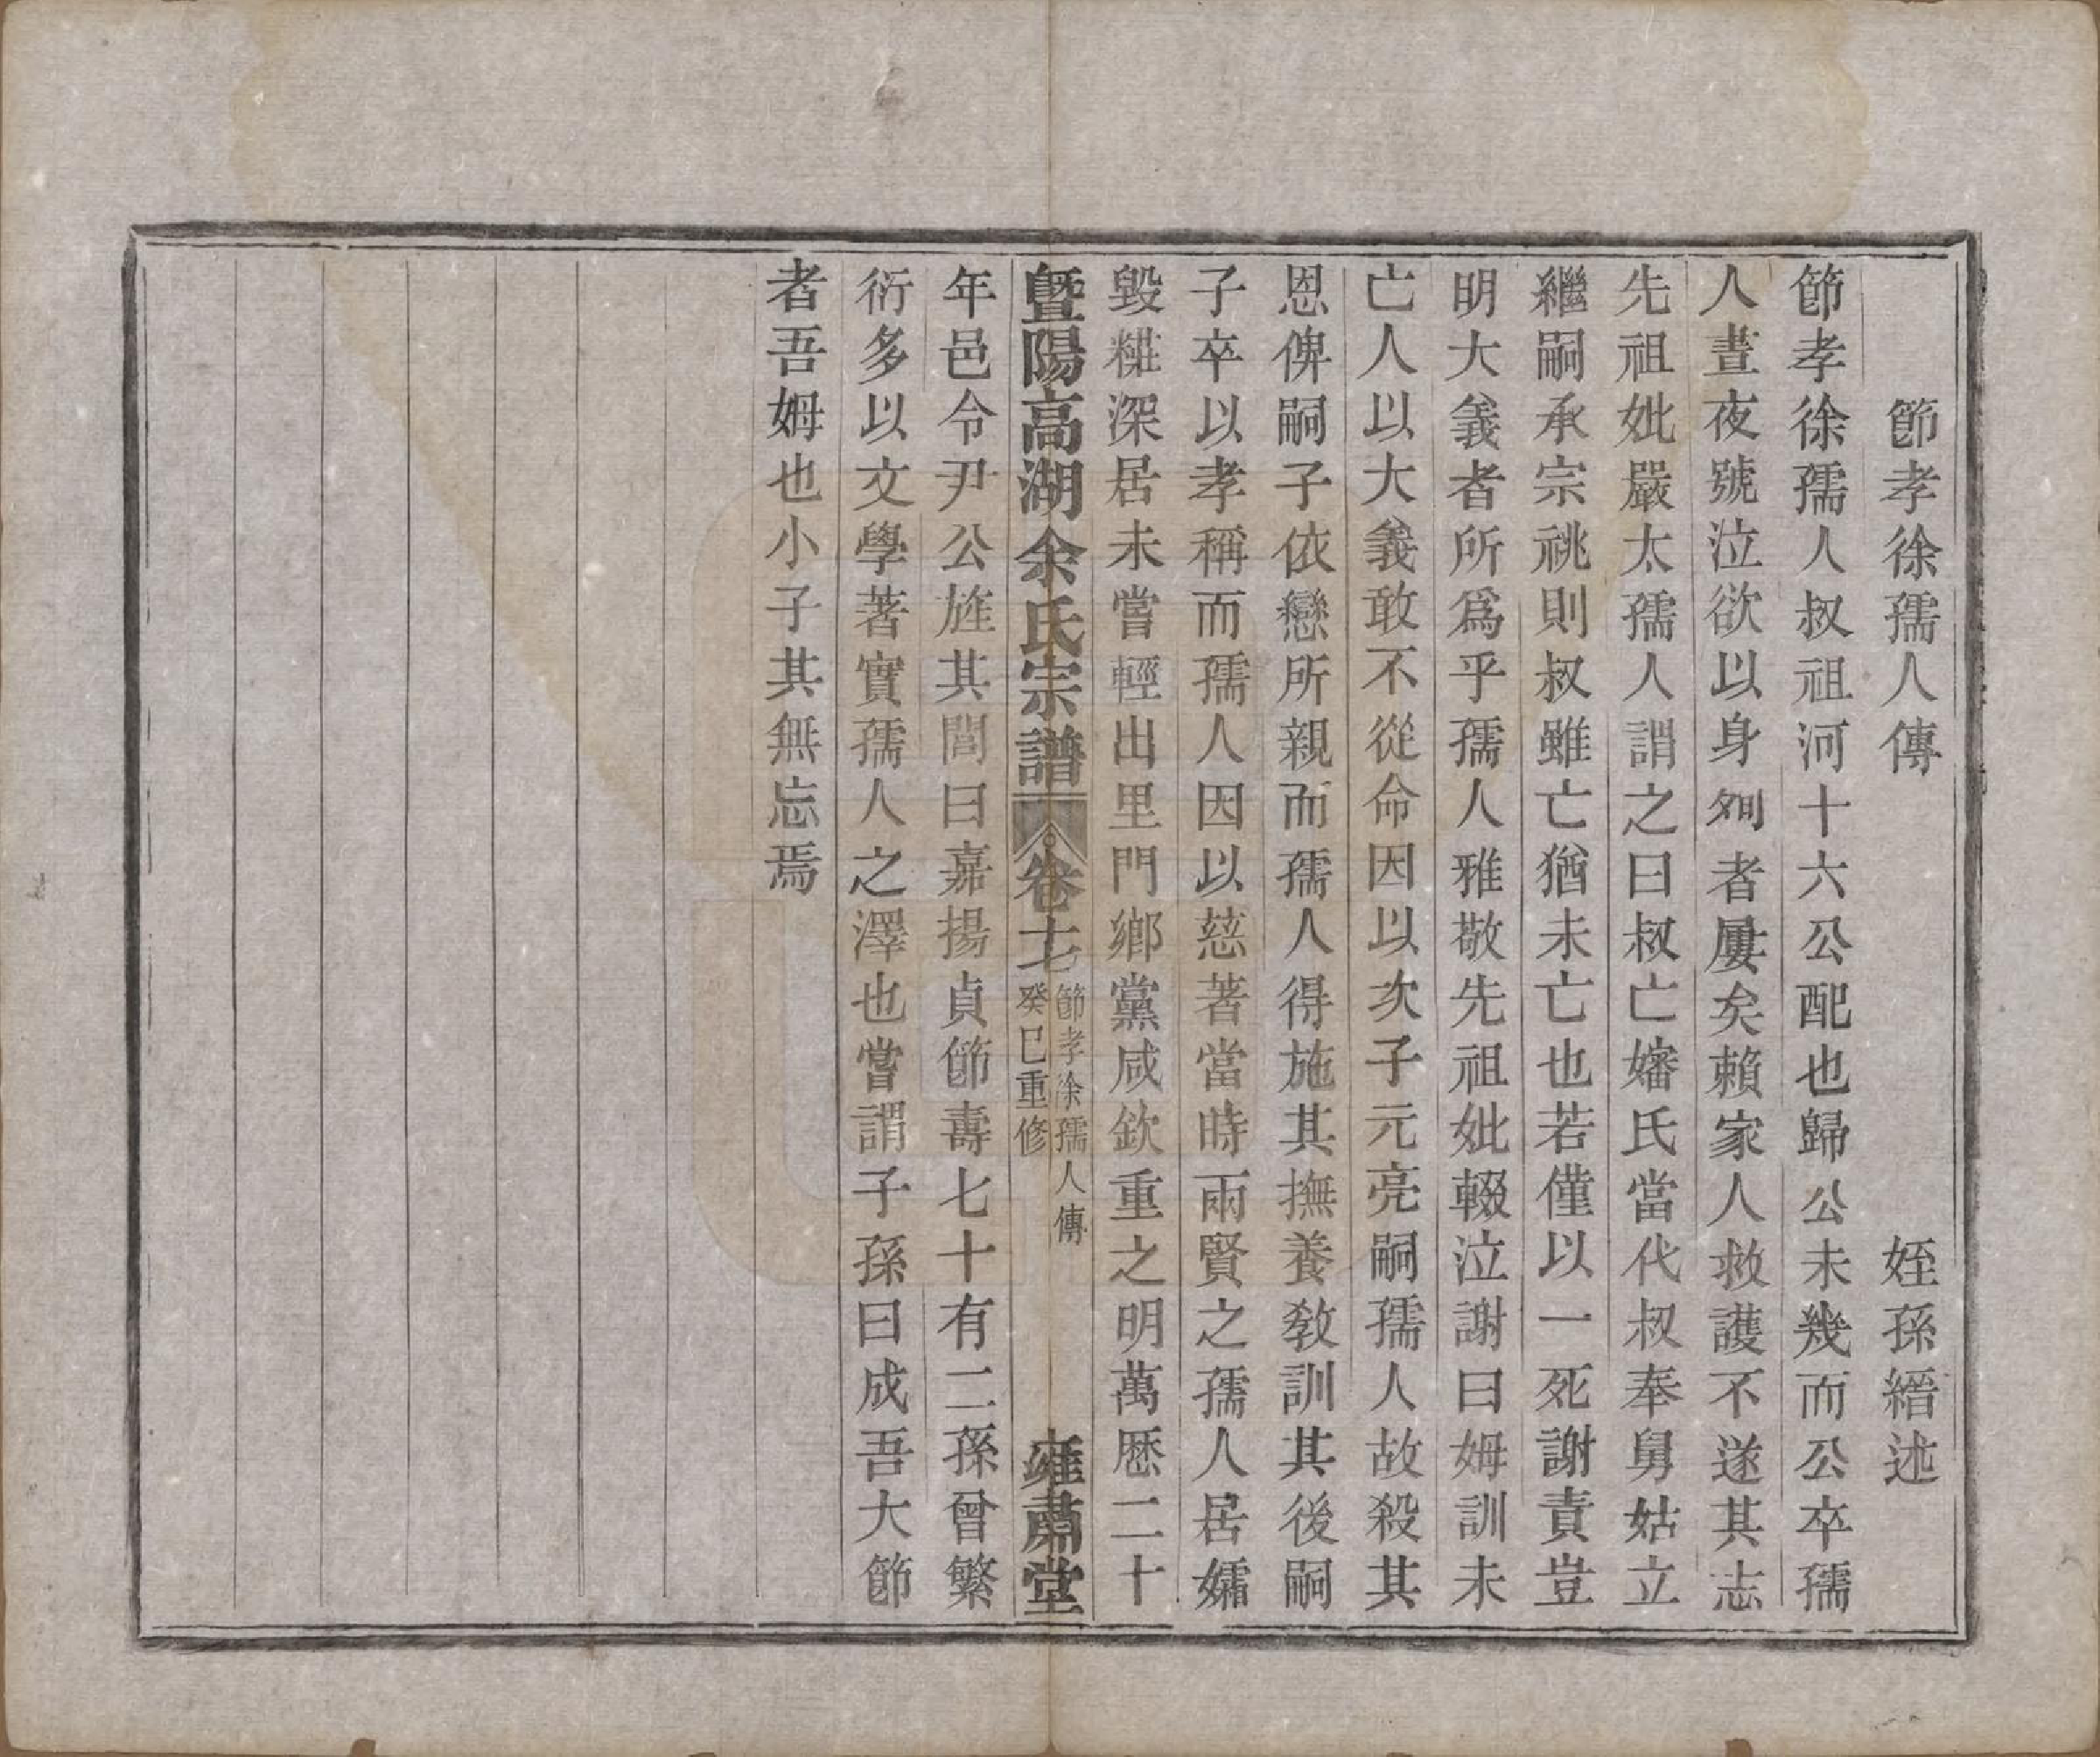 節孝徐孺人傳　姪孫縉述
節孝徐孺人叔祖河十六公配也歸公未幾而公卒孺
人晝夜號泣欲以身殉者屢矣賴家人救護不遂其志
先祖妣嚴太孺人謂之曰叔亡嬸氏當代叔奉舅姑立
繼嗣承宗祧則叔雖亡猶未亡也若僅以一死謝責豈
明大義者所爲乎孺人雅敬先祖妣輟泣謝曰姆訓未
亡人以大義敢不從命因以次子元亮嗣孺人故殺其
恩俾嗣子依戀所親而孺人得施其撫養敎訓其後嗣
子卒以孝稱而孺人因以慈著當時兩賢之孺人居孀
毀糚深居未嘗輕出里門鄉黨咸欽重之明萬厯二十
暨陽高湖余氏宗譜　卷十七　節孝徐孺人傳　癸巳重修　雍肅堂
年邑令尹公旌其閭曰嘉揚貞節壽七十有二孫曾繁
衍多以文學著實孺人之澤也嘗謂子孫曰成吾大節
者吾姆也小子其無忘焉